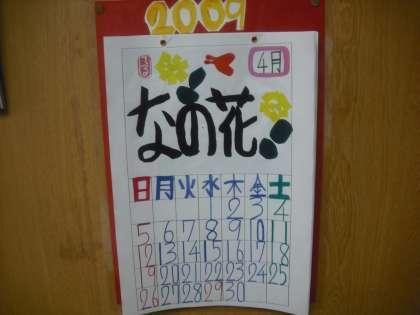 2009
4月
なの花
日 月 火 水 木 金 土
2 3 4
5 6 7 8 9 10 11
12 13 14 15 16 17 18
19 20 21 22 23 24 25
26 27 28 29 30